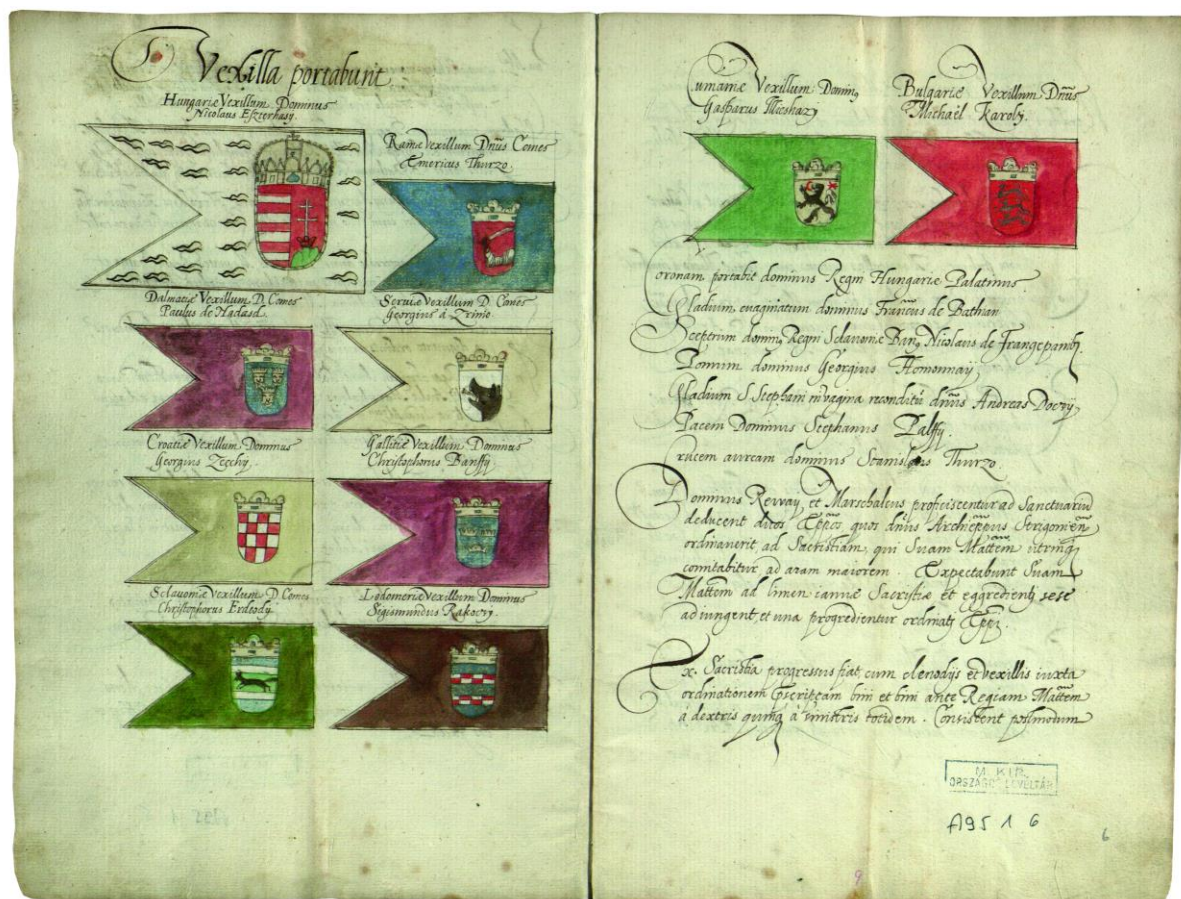 Vexilla portabunt
Hungariæ Vexillum Dominus
Nicolaus Eszterhasÿ.
Ramæ Vexillum Dñus Comes
Emericus Thurzo.
Dalmatiæ Vexillum D. Comes
Paulus de Nadasd.
Seruiæ Vexillum D. Comes
Georgius à Zrinio
Croatiæ Vexillum Dominus
Georgius Zechÿ.
Gallitiæ Vexillum Dominus
Christophorus Banffÿ
Sclauoniæ Vexillum D. Comes
Christophorus Erdeodÿ.
Lodomeriæ Vexillum Dominus
Sigismundus Rakoczÿ.
Cumaniæ Vexillum Domin9
Gasparus Illieshazÿ
Bulgariæ Vexillum Dñus
Michaël Karolÿ.
Coronam portabit dominus Regni Hungariæ Palatinus.
Gladium euaginatum dominus Francus de Bathian
Sceptrum domin9 Regni Sclauoniæ Ban9 Nicolaus de Frangepanib.
Pomum dominus Georgius Homonnay
Gladium S. Stephani in vagina reconditū dñus Andreas Doczÿ
Pacem Dominus Stephanus Palffÿ.
Crucem auream dominus Stanislaus Thurzo.
Dominus Reuuay, et Marschalcus proficiscentur ad Sanctuariū
deducent dictos Eppõs quos dñus Archieppus Strigonieñ
ordinauerit, ad Sacristiam, qui Suam Mattem utrinq
comitabitur ad aram maiorem. Expectabunt Suam
Mattem ad limen ianuæ Sacristiæ et eggredienti sese
adiungent, et una progredientur ordinati Eppi.
Ex Sacristia progressus fiat, cum clenodijs et vexillis iuxta
ordinationem bini et bini ante Regiam Mattem
à dextris quinq à sinistris totidem. Consistent postmodum
M. KIR.
ORSZÁGOS LEVÉLTÁR
A95 1 6
6
9